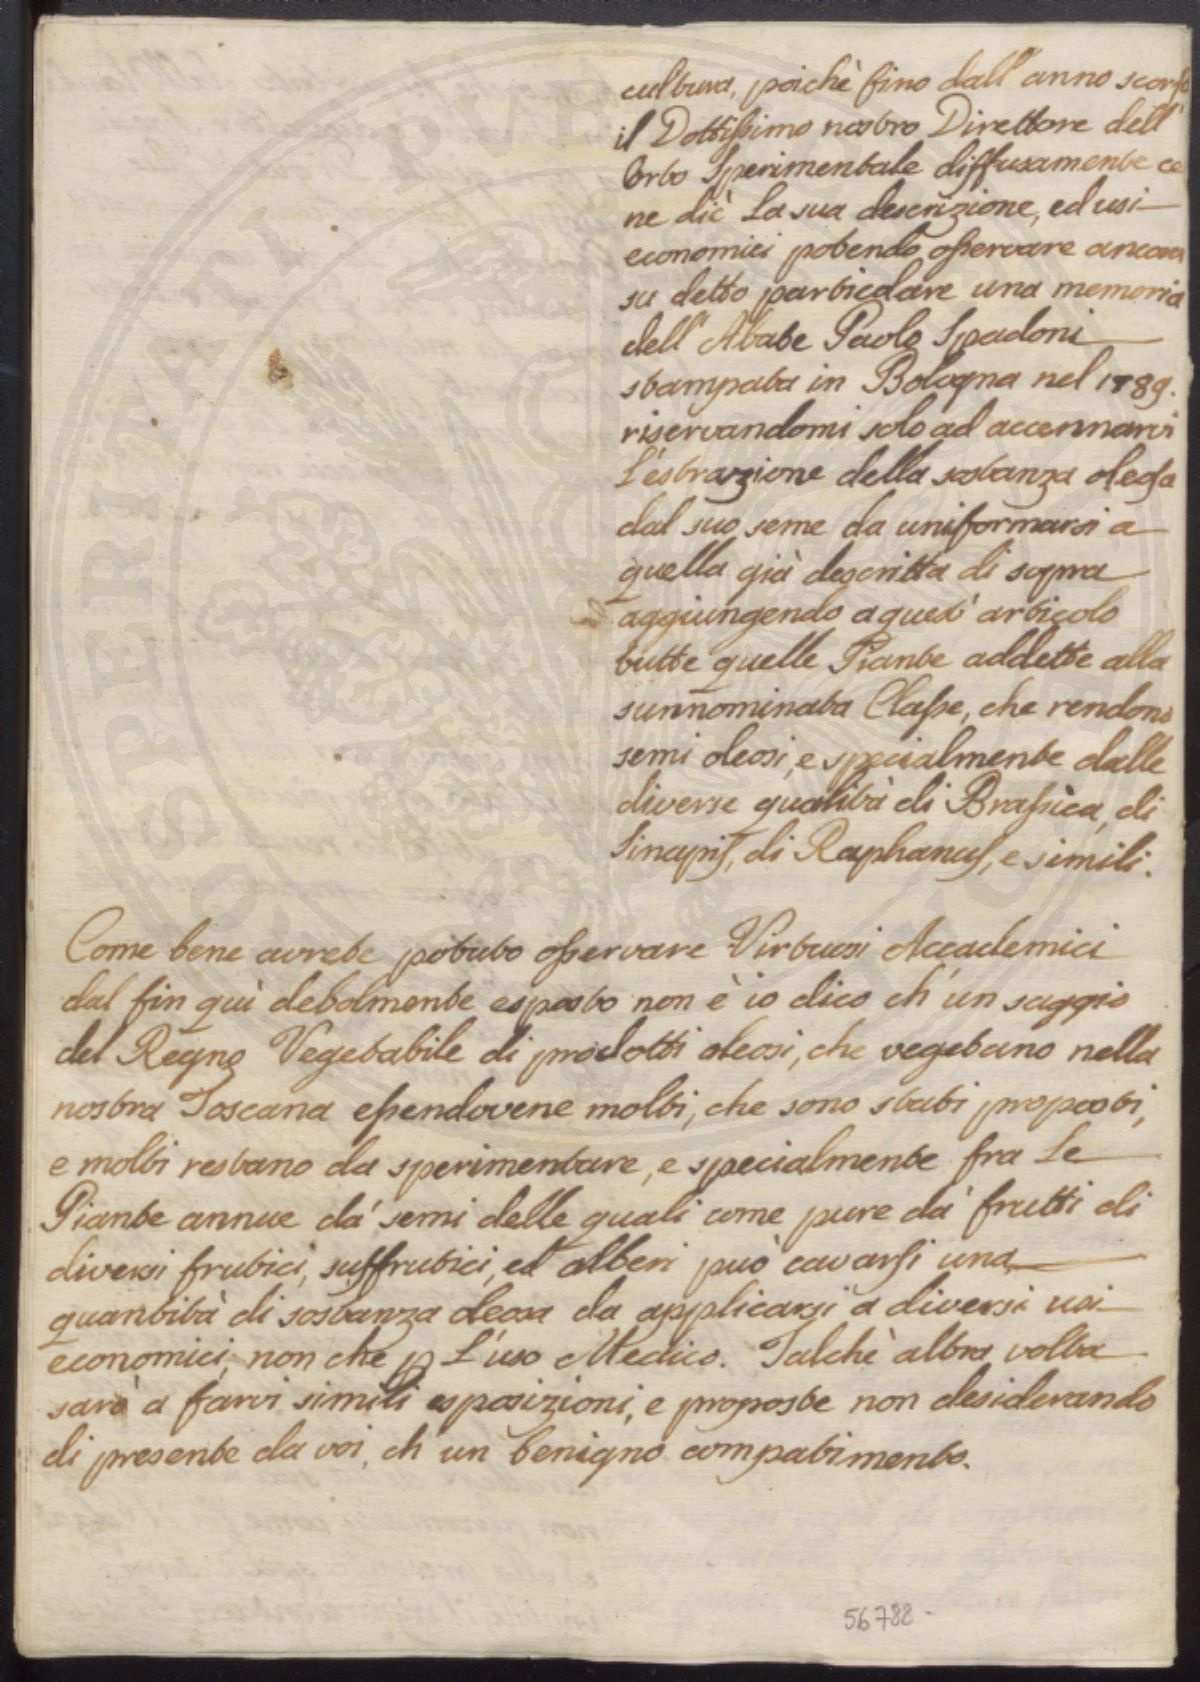 cultura, poichè fino dall'anno scorso
il Dottissimo nostro Direttore dell'
Orto Sperimentale diffusamente ce
ne diè La sua descrizione, ed usi
economici potendo osservare ancora
su detto particolare una memoria
dell'Abate Paolo Spadoni
stampata in Bologna nel 1789.
riservandomi solo ad accennarvi
L'estrazione della sostanza oleosa
dal suo seme da uniformarsi a
quella già descritta di sopra
aggiungendo a quest'articolo
tutte quelle Piante addette alla
sunnominata Classe, che rendono
semi oleosi, e specialmente dalle
diverse qualità di Brassica, di
Sinapis, di Raphanus, e simili.
Come bene avrete potuto osservare Virtuosi Accademici
dal fin quì debolmente esposto non è io dico ch'un saggio
del Regno Vegetabile di prodotti oleosi, che vegetano nella
nostra Toscana essendovene molti, che sono stati proposti,
e molti restano da sperimentare, e specialmente fra Le
Piante annue da' semi delle quali come pure da' frutti di
diversi frutici, suffrutici, ed alberi può cavarsi una
quantità di sostanza oleosa da applicarsi a diversi usi
economici, non che p L'uso Medico. Talchè altra volta
sarò a farvi simili esposizioni, e proposte non desiderando
di presente da voi, ch'un benigno compatimento.
56788 -
PROSPERITATI PUBLICAE